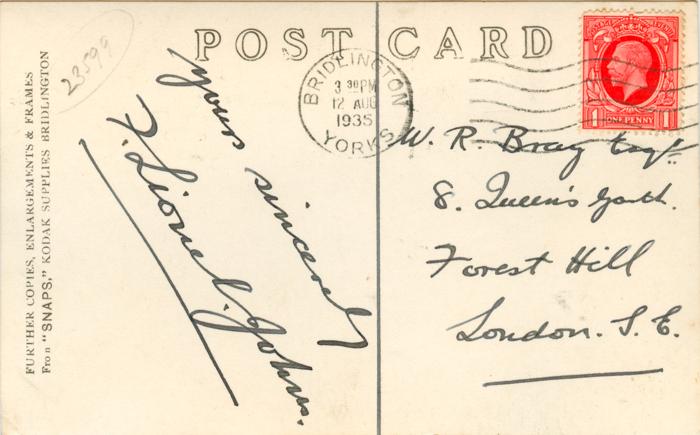 POST CARD
23599
FURTHER COPIES, ENLARGEMENTS & FRAMES
From "SNAPS," KODAK SUPPLIES BRIDLINGTON
yours sincerely
F. Lionel. Johns.
BRIDLINGTON
3 30 PM
12 AUG
1935
YORKS
POSTAGE REVENUE
1 ONE PENNY 1
W. R. Bray Esqr.
8. Queen's Garth.
Forest Hill
London. S. E.